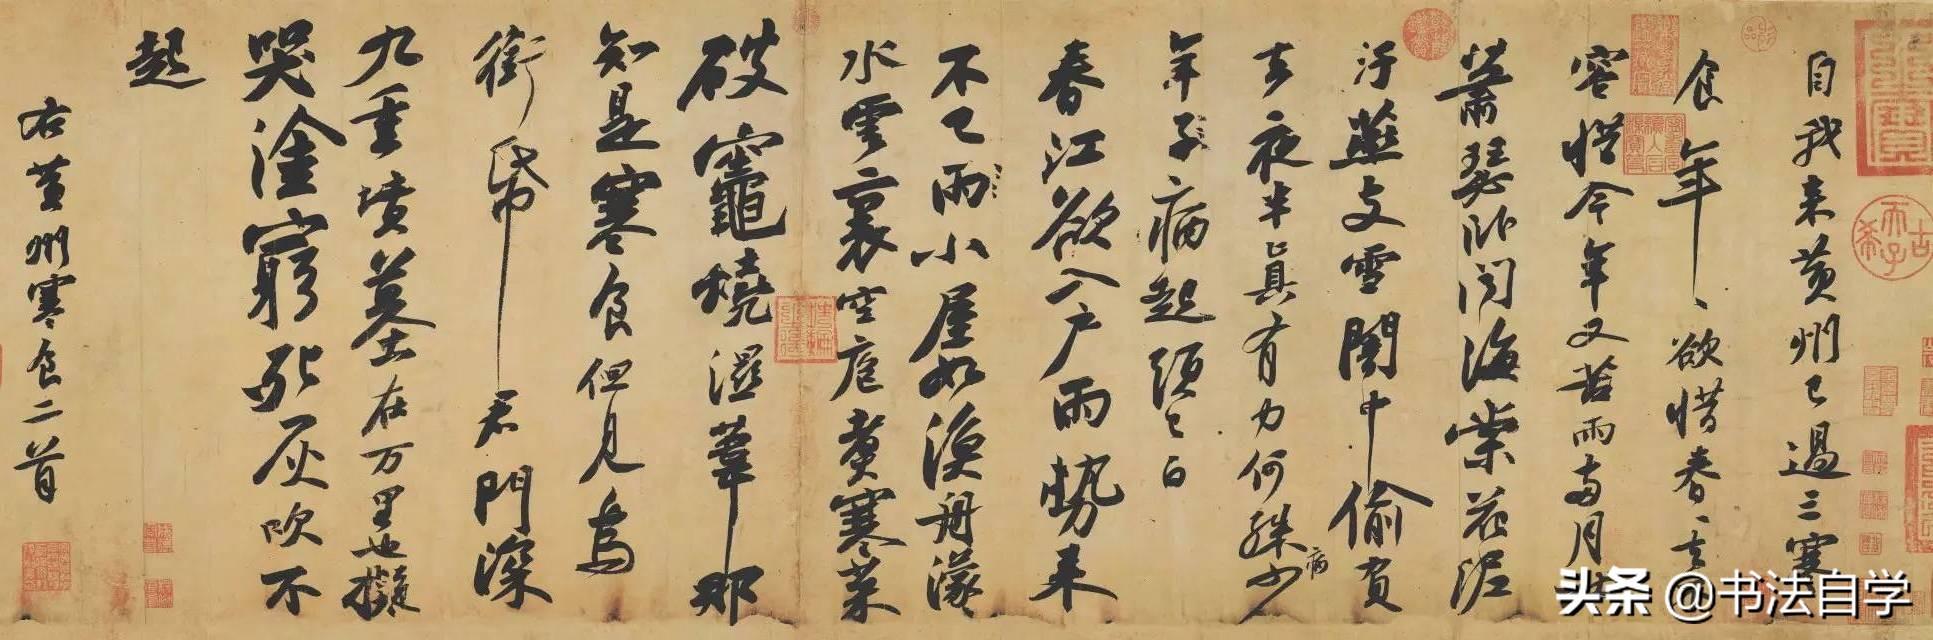 自我來黃州已過三寒
食年〻欲惜春〻去不
容惜今年又苦雨兩月秋
蕭瑟臥聞海棠花泥
汙燕支雪闇中偷負
去夜半真有力何殊少
病
年子病起頭已白
春江欲入戶雨勢來
不已雨小屋如漁舟濛〻
水雲裏空庖煑寒菜
破竈燒濕葦那
知是寒食但見烏
銜帋君門深
九重墳墓在万里也擬
哭塗窮死灰吹不
起
右黃州寒食二首
古希天子
头条 @书法自学